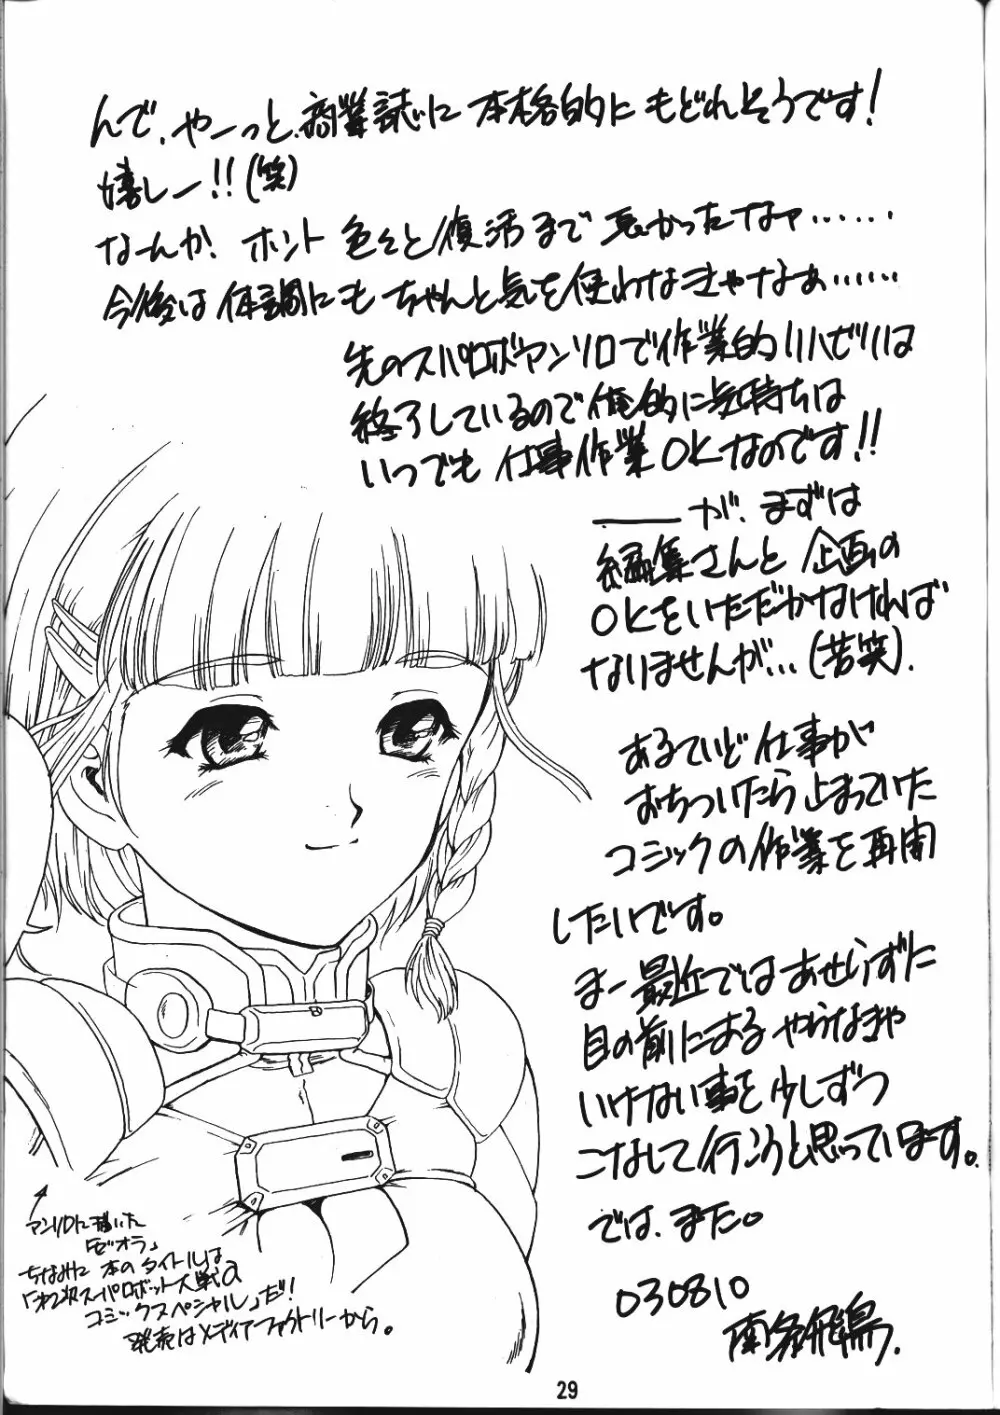 んで、やーっと、商業誌に本格的にもどれそうです!
嬉しー!!(笑)
なんか、ホント色々と復活まで長かったなァ……
今後は体調にもちゃんと気を使わなきゃなぁ……
先のスパロボアンソロで作業的リハビリは
終了しているので俺的に気持ちは
いつでも仕事作業OKなのです!!
――が、まずは
編集さんと企画の
OKをいただかなければ
なりませんが…(苦笑).
あるていど仕事が
おちついたら止まっていた
コミックの作業を再開
したいです。
まー最近ではあせらずに
目の前にあるやらなきゃ
いけない事を少しずつ
こなして行こうと思っています。
では、また。
030810
南条飛鳥.
アンソロに描いた
「ゼオラ」
ちなみに本のタイトルは
「第2次スーパーロボット大戦α
コミックスペシャル」だ!!
発売はメディアファクトリーから。
29